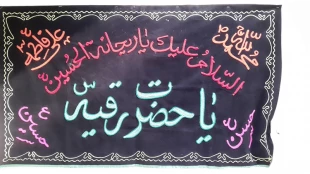 محمد علی فاطمه
السلام علیک یا ریحانة الحسین
یا حضرت رقیه س
حسن حسین